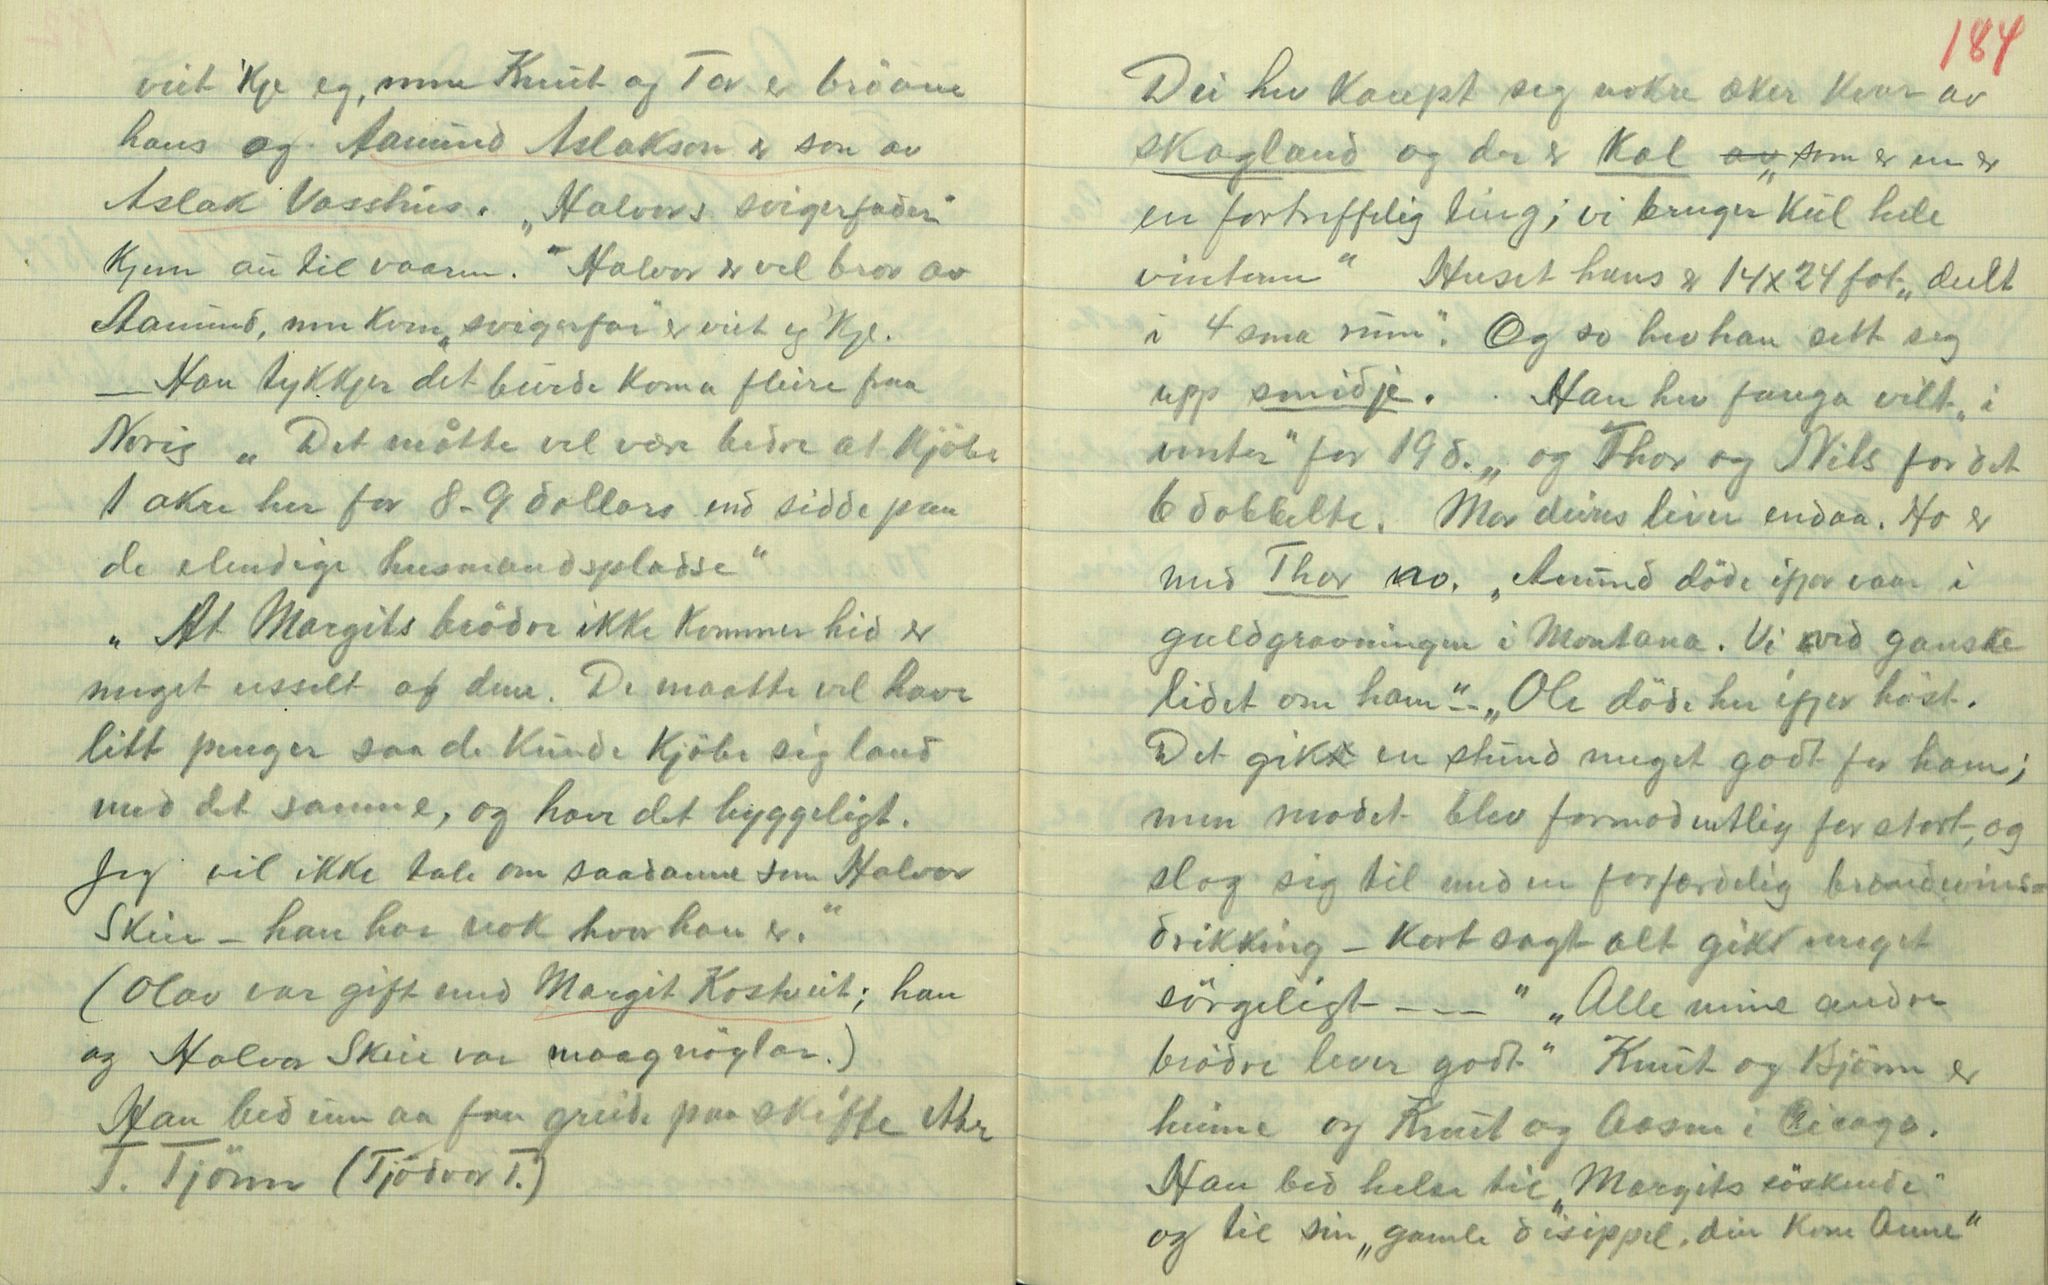 veit 'kje eg, men Knut og Tor er brörne
hans og Aamund Aslakson er son av
Aslak Vasshus. „Halvors svigerfader"
kjem au til vaaren." Halvor er vel bror av
Aamund, men kven „svigerfar" er veit eg 'kje.
— Han tykkjer det burde koma fleire fraa
Norig „Det måtte vel være bedre at kjöbe
1 akre her for 8-9 dollars end sidde paa
de elendige husmandspladse"
„At Margits brödre ikke kommer hid er
meget usselt af dem. De maatte vel have
litt penger saa de kunde kjöbe sig land
med det samme, og have det hyggeligt.
Jeg vil ikke tale om saadanne som Halvor
Skeie - han har nok hvor han er."
(Olav var gift med Margit Kostveit; han
og Halvor Skeie var maagnöglar.)
Han bed um aa faa greide paa skifte etter
T. Tjönn (Tjodvor T.)
184
Dei hev kaupt seg nokre æker kvar av
skogland og der er kol av „som er en er
en fortreffelig ting; vi bruger kul hele
vinteren" Huset hans er 14x24 fot „deelt
i 4 sma rum". Og so hev han sett seg
upp smidje. Han hev fanga vilt „i
vinter" for 19 d. „og Thor og Nils for det
6 dobbelte. Mor deires liver endaa. Ho er
med Thor no. „Amund döde ifjor vaar i
guldgravningen i Montana. Vi ved ganske
lidet om ham" - „Ole döde her ifjor höst.
Det gik en stund meget godt for ham;
men modet blev formodentlig for stort, og
slog sig til med en forfærdelig brændevins=
drikking - kort sagt alt gikk meget
sörgeligt - - - " „Alle mine andre
brödre lever godt" Knut og Björn er
heime og Knut og Aasne i Cicago.
Han bed helse til „Margits söskende"
og til sin „gamle disippel, din kone Anne"